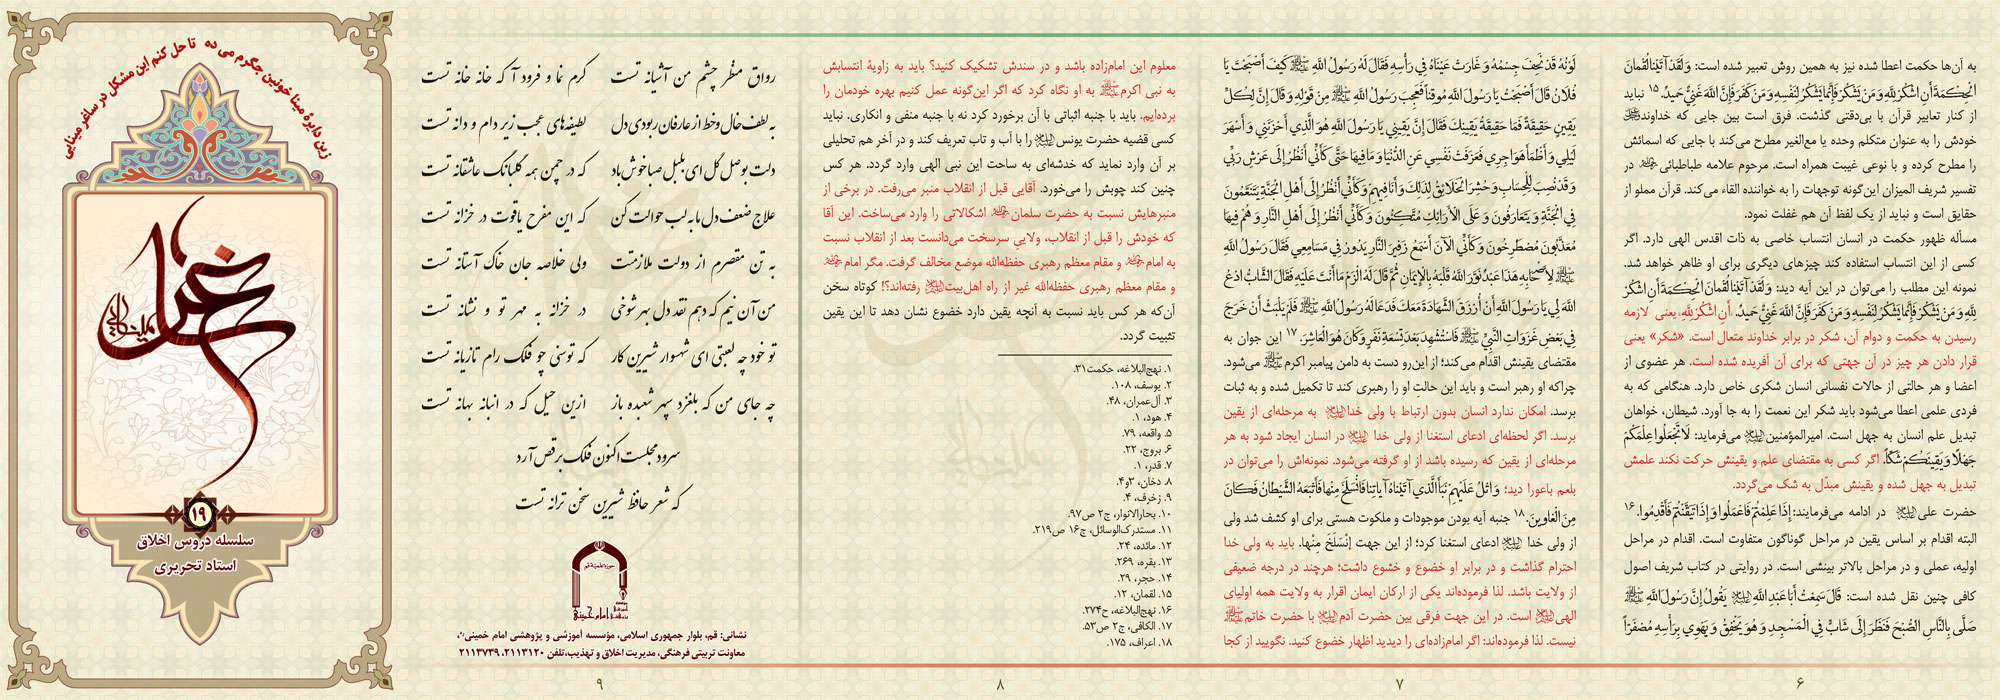 به آن‌ها حکمت اعطا شده نیز به همین روش تعبیر شده است: وَلَقَدْ آتَيْنَا لُقْمَانَ
الْحِكْمَةَ أَنِ اشْكُرْ لِلَّهِ وَمَن يَشْكُرْ فَإِنَّمَا يَشْكُرُ لِنَفْسِهِ وَمَن كَفَرَ فَإِنَّ اللَّهَ غَنِيٌّ حَمِيدٌ. ۱۵ نباید
از کنار تعابیر قرآن با بی‌دقتی گذشت. فرق است بین جایی که خداوند
خودش را به عنوان متکلم وحده یا مع‌الغیر مطرح می‌کند با جایی که اسمائش
را مطرح کرده و با نوعی غیبت همراه است. مرحوم علامه طباطبائی در
تفسیر شریف المیزان این‌گونه توجهات را به خواننده القاء می‌کند. قرآن مملو از
حقایق است و نباید از یک لفظ آن هم غفلت نمود.
مسأله ظهور حکمت در انسان انتساب خاصی به ذات اقدس الهی دارد. اگر
کسی از این انتساب استفاده کند چیزهای دیگری برای او ظاهر خواهد شد.
نمونه این مطلب را می‌توان در این آیه دید: وَلَقَدْ آتَيْنَا لُقْمَانَ الْحِكْمَةَ أَنِ اشْكُرْ
لِلَّهِ وَمَن يَشْكُرْ فَإِنَّمَا يَشْكُرُ لِنَفْسِهِ وَمَن كَفَرَ فَإِنَّ اللَّهَ غَنِيٌّ حَمِيدٌ. أَنِ اشْكُرْ لِلَّهِ، یعنی لازمه
رسیدن به حکمت و دوام آن، شکر در برابر خداوند متعال است. «شکر» یعنی
قرار دادن هر چیز در آن جهتی که برای آن آفریده شده است. هر عضوی از
اعضا و هر حالتی از حالات نفسانی انسان شکری خاص دارد. هنگامی که به
فردی علمی اعطا می‌شود باید شکر این نعمت را به جا آورد. شیطان، خواهان
تبدیل علم انسان به جهل است. امیرالمؤمنین می‌فرماید: لَا تَجْعَلُوا عِلْمَكُمْ
جَهْلًا وَ يَقِينَكُمْ شَكًّا. اگر کسی به مقتضای علم و یقینش حرکت نکند علمش
تبدیل به جهل شده و یقینش مبدّل به شک می‌گردد.
حضرت علی در ادامه می‌فرمایند: إِذَا عَلِمْتُمْ فَاعْمَلُوا وَ إِذَا تَيَقَّنْتُمْ فَأَقْدِمُوا. ۱۶
البته اقدام بر اساس یقین در مراحل گوناگون متفاوت است. اقدام در مراحل
اولیه، عملی و در مراحل بالاتر بینشی است. در روایتی در کتاب شریف اصول
کافی چنین نقل شده است: قَالَ سَمِعْتُ أَبَا عَبْدِ اللَّهِ يَقُولُ إِنَّ رَسُولَ اللَّهِ
صَلَّى بِالنَّاسِ الصُّبْحَ فَنَظَرَ إِلَى شَابٍّ فِي الْمَسْجِدِ وَ هُوَ يَخْفِقُ وَ يَهْوِي بِرَأْسِهِ مُصْفَرّاً
۶
لَوْنُهُ قَدْ نَحِفَ جِسْمُهُ وَ غَارَتْ عَيْنَاهُ فِي رَأْسِهِ فَقَالَ لَهُ رَسُولُ اللَّهِ كَيْفَ أَصْبَحْتَ يَا
فُلَانُ قَالَ أَصْبَحْتُ يَا رَسُولَ اللَّهِ مُوقِناً فَعَجِبَ رَسُولُ اللَّهِ مِنْ قَوْلِهِ وَ قَالَ إِنَّ لِكُلِّ
يَقِينٍ حَقِيقَةً فَمَا حَقِيقَةُ يَقِينِكَ فَقَالَ إِنَّ يَقِينِي يَا رَسُولَ اللَّهِ هُوَ الَّذِي أَحْزَنَنِي وَ أَسْهَرَ
لَيْلِي وَ أَظْمَأَ هَوَاجِرِي فَعَزَفَتْ نَفْسِي عَنِ الدُّنْيَا وَ مَا فِيهَا حَتَّى كَأَنِّي أَنْظُرُ إِلَى عَرْشِ رَبِّي
وَ قَدْ نُصِبَ لِلْحِسَابِ وَ حُشِرَ الْخَلَائِقُ لِذَلِكَ وَ أَنَا فِيهِمْ وَ كَأَنِّي أَنْظُرُ إِلَى أَهْلِ الْجَنَّةِ يَتَنَعَّمُونَ
فِي الْجَنَّةِ وَ يَتَعَارَفُونَ وَ عَلَى الْأَرَائِكِ مُتَّكِئُونَ وَ كَأَنِّي أَنْظُرُ إِلَى أَهْلِ النَّارِ وَ هُمْ فِيهَا
مُعَذَّبُونَ مُصْطَرِخُونَ وَ كَأَنِّي الْآنَ أَسْمَعُ زَفِيرَ النَّارِ يَدُورُ فِي مَسَامِعِي فَقَالَ رَسُولُ اللَّهِ
لِأَصْحَابِهِ هَذَا عَبْدٌ نَوَّرَ اللَّهُ قَلْبَهُ بِالْإِيمَانِ ثُمَّ قَالَ لَهُ الْزَمْ مَا أَنْتَ عَلَيْهِ فَقَالَ الشَّابُّ ادْعُ
اللَّهَ لِي يَا رَسُولَ اللَّهِ أَنْ أُرْزَقَ الشَّهَادَةَ مَعَكَ فَدَعَا لَهُ رَسُولُ اللَّهِ فَلَمْ يَلْبَثْ أَنْ خَرَجَ
فِي بَعْضِ غَزَوَاتِ النَّبِيِّ فَاسْتُشْهِدَ بَعْدَ تِسْعَةِ نَفَرٍ وَ كَانَ هُوَ الْعَاشِرَ. ۱۷ این جوان به
مقتضای یقینش اقدام می‌کند؛ از این‌رو دست به دامن پیامبر اکرم می‌شود.
چراکه او رهبر است و باید این حالتِ او را رهبری کند تا تکمیل شده و به ثبات
برسد. امکان ندارد انسان بدون ارتباط با ولی خدا به مرحله‌ای از یقین
برسد. اگر لحظه‌ای ادعای استغنا از ولی خدا در انسان ایجاد شود به هر
مرحله‌ای از یقین که رسیده باشد از او گرفته می‌شود. نمونه‌اش را می‌توان در
بلعم باعورا دید؛ وَاتْلُ عَلَيْهِمْ نَبَأَ الَّذِي آتَيْنَاهُ آيَاتِنَا فَانسَلَخَ مِنْهَا فَأَتْبَعَهُ الشَّيْطَانُ فَكَانَ
مِنَ الْغَاوِينَ. ۱۸ جنبه آیه بودن موجودات و ملکوت هستی برای او کشف شد ولی
از ولی خدا ادعای استغنا کرد؛ از این جهت إنْسَلَخَ مِنْها. باید به ولی خدا
احترام گذاشت و در برابر او خضوع و خشوع داشت؛ هرچند در درجه ضعیفی
از ولایت باشد. لذا فرموده‌اند یکی از ارکان ایمان اقرار به ولایت همه اولیای
الهی است. در این جهت فرقی بین حضرت آدم با حضرت خاتم
نیست. لذا فرموده‌اند: اگر امام‌زاده‌ای را دیدید اظهار خضوع کنید. نگویید از کجا
۷
معلوم این امام‌زاده باشد و در سندش تشکیک کنید؟ باید به زاویهٔ انتسابش
به نبی اکرم به او نگاه کرد که اگر این‌گونه عمل کنیم بهره خودمان را
برده‌ایم. باید با جنبه اثباتی با آن برخورد کرد نه با جنبه منفی و انکاری. نباید
کسی قضیه حضرت یونس را با آب و تاب تعریف کند و در آخر هم تحلیلی
بر آن وارد نماید که خدشه‌ای به ساحت این نبی الهی وارد گردد. هر کس
چنین کند چوبش را می‌خورد. آقایی قبل از انقلاب منبر می‌رفت. در برخی از
منبرهایش نسبت به حضرت سلمان اشکالاتی را وارد می‌ساخت. این آقا
که خودش را قبل از انقلاب، ولایی سرسخت می‌دانست بعد از انقلاب نسبت
به امام و مقام معظم رهبری حفظه‌الله موضع مخالف گرفت. مگر امام
و مقام معظم رهبری حفظه‌الله غیر از راه اهل‌بیت رفته‌اند؟! کوتاه سخن
آن‌که هر کس باید نسبت به آنچه یقین دارد خضوع نشان دهد تا این یقین
تثبیت گردد.
۱. نهج‌البلاغه، حکمت۳۱.
۲. یوسف، ۱۰۸.
۳. آل‌عمران، ۴۸.
۴. هود، ۱.
۵. واقعه، ۷۹.
۶. بروج، ۲۲.
۷. قدر، ۱.
۸. دخان، ۳و۴.
۹. زخرف، ۴.
۱۰. بحارالانوار، ج۲ ص۹۷.
۱۱. مستدرک‌الوسائل، ج۱۶ ص۲۱۹.
۱۲. مائده، ۲۴.
۱۳. بقره، ۲۶۹.
۱۴. حجر، ۲۹.
۱۵. لقمان، ۱۲.
۱۶. نهج‌البلاغه، ح۲۷۴.
۱۷. الکافی، ج۲ ص۵۳.
۱۸. اعراف، ۱۷۵.
۸
رواق منظر چشم من آشیانه تست کرم نما و فرود آ که خانه خانه تست
به لطف خال و خط از عارفان ربودی دل لطیفه‌های عجب زیر دام و دانه تست
دلت بوصل گل ای بلبل صبا خوش باد که در چمن همه گلبانگ عاشقانه تست
علاج ضعف دل ما به لب حوالت کن که این مفرح یاقوت در خزانه تست
به تن مقصرم از دولت ملازمتت ولی خلاصه جان خاک آستانه تست
من آن نیم که دهم نقد دل بهر شوخی در خزانه به مهر تو و نشانه تست
تو خود چه لعبتی ای شهسوار شیرین کار که توسنی چو فلک رام تازیانه تست
چه جای من که بلغزد سپهر شعبده باز ازین حیل که در انبانه بهانه تست
سرود مجلست اکنون فلک برقص آرد
که شعر حافظ شیرین سخن ترانه تست
حوزه علمیه قم
امام خمینی
نشانی: قم، بلوار جمهوری اسلامی، مؤسسه آموزشی و پژوهشی امام خمینی
معاونت تربیتی فرهنگی، مدیریت اخلاق و تهذیب،تلفن ۲۱۱۳۱۲۰، ۲۱۱۳۷۳۹
۹
زین دایرهٔ مینا خونین جگرم می ده تا حل کنم این مشکل در ساغر مینایی
۱۹
سلسله دروس اخلاق
استاد تحریری